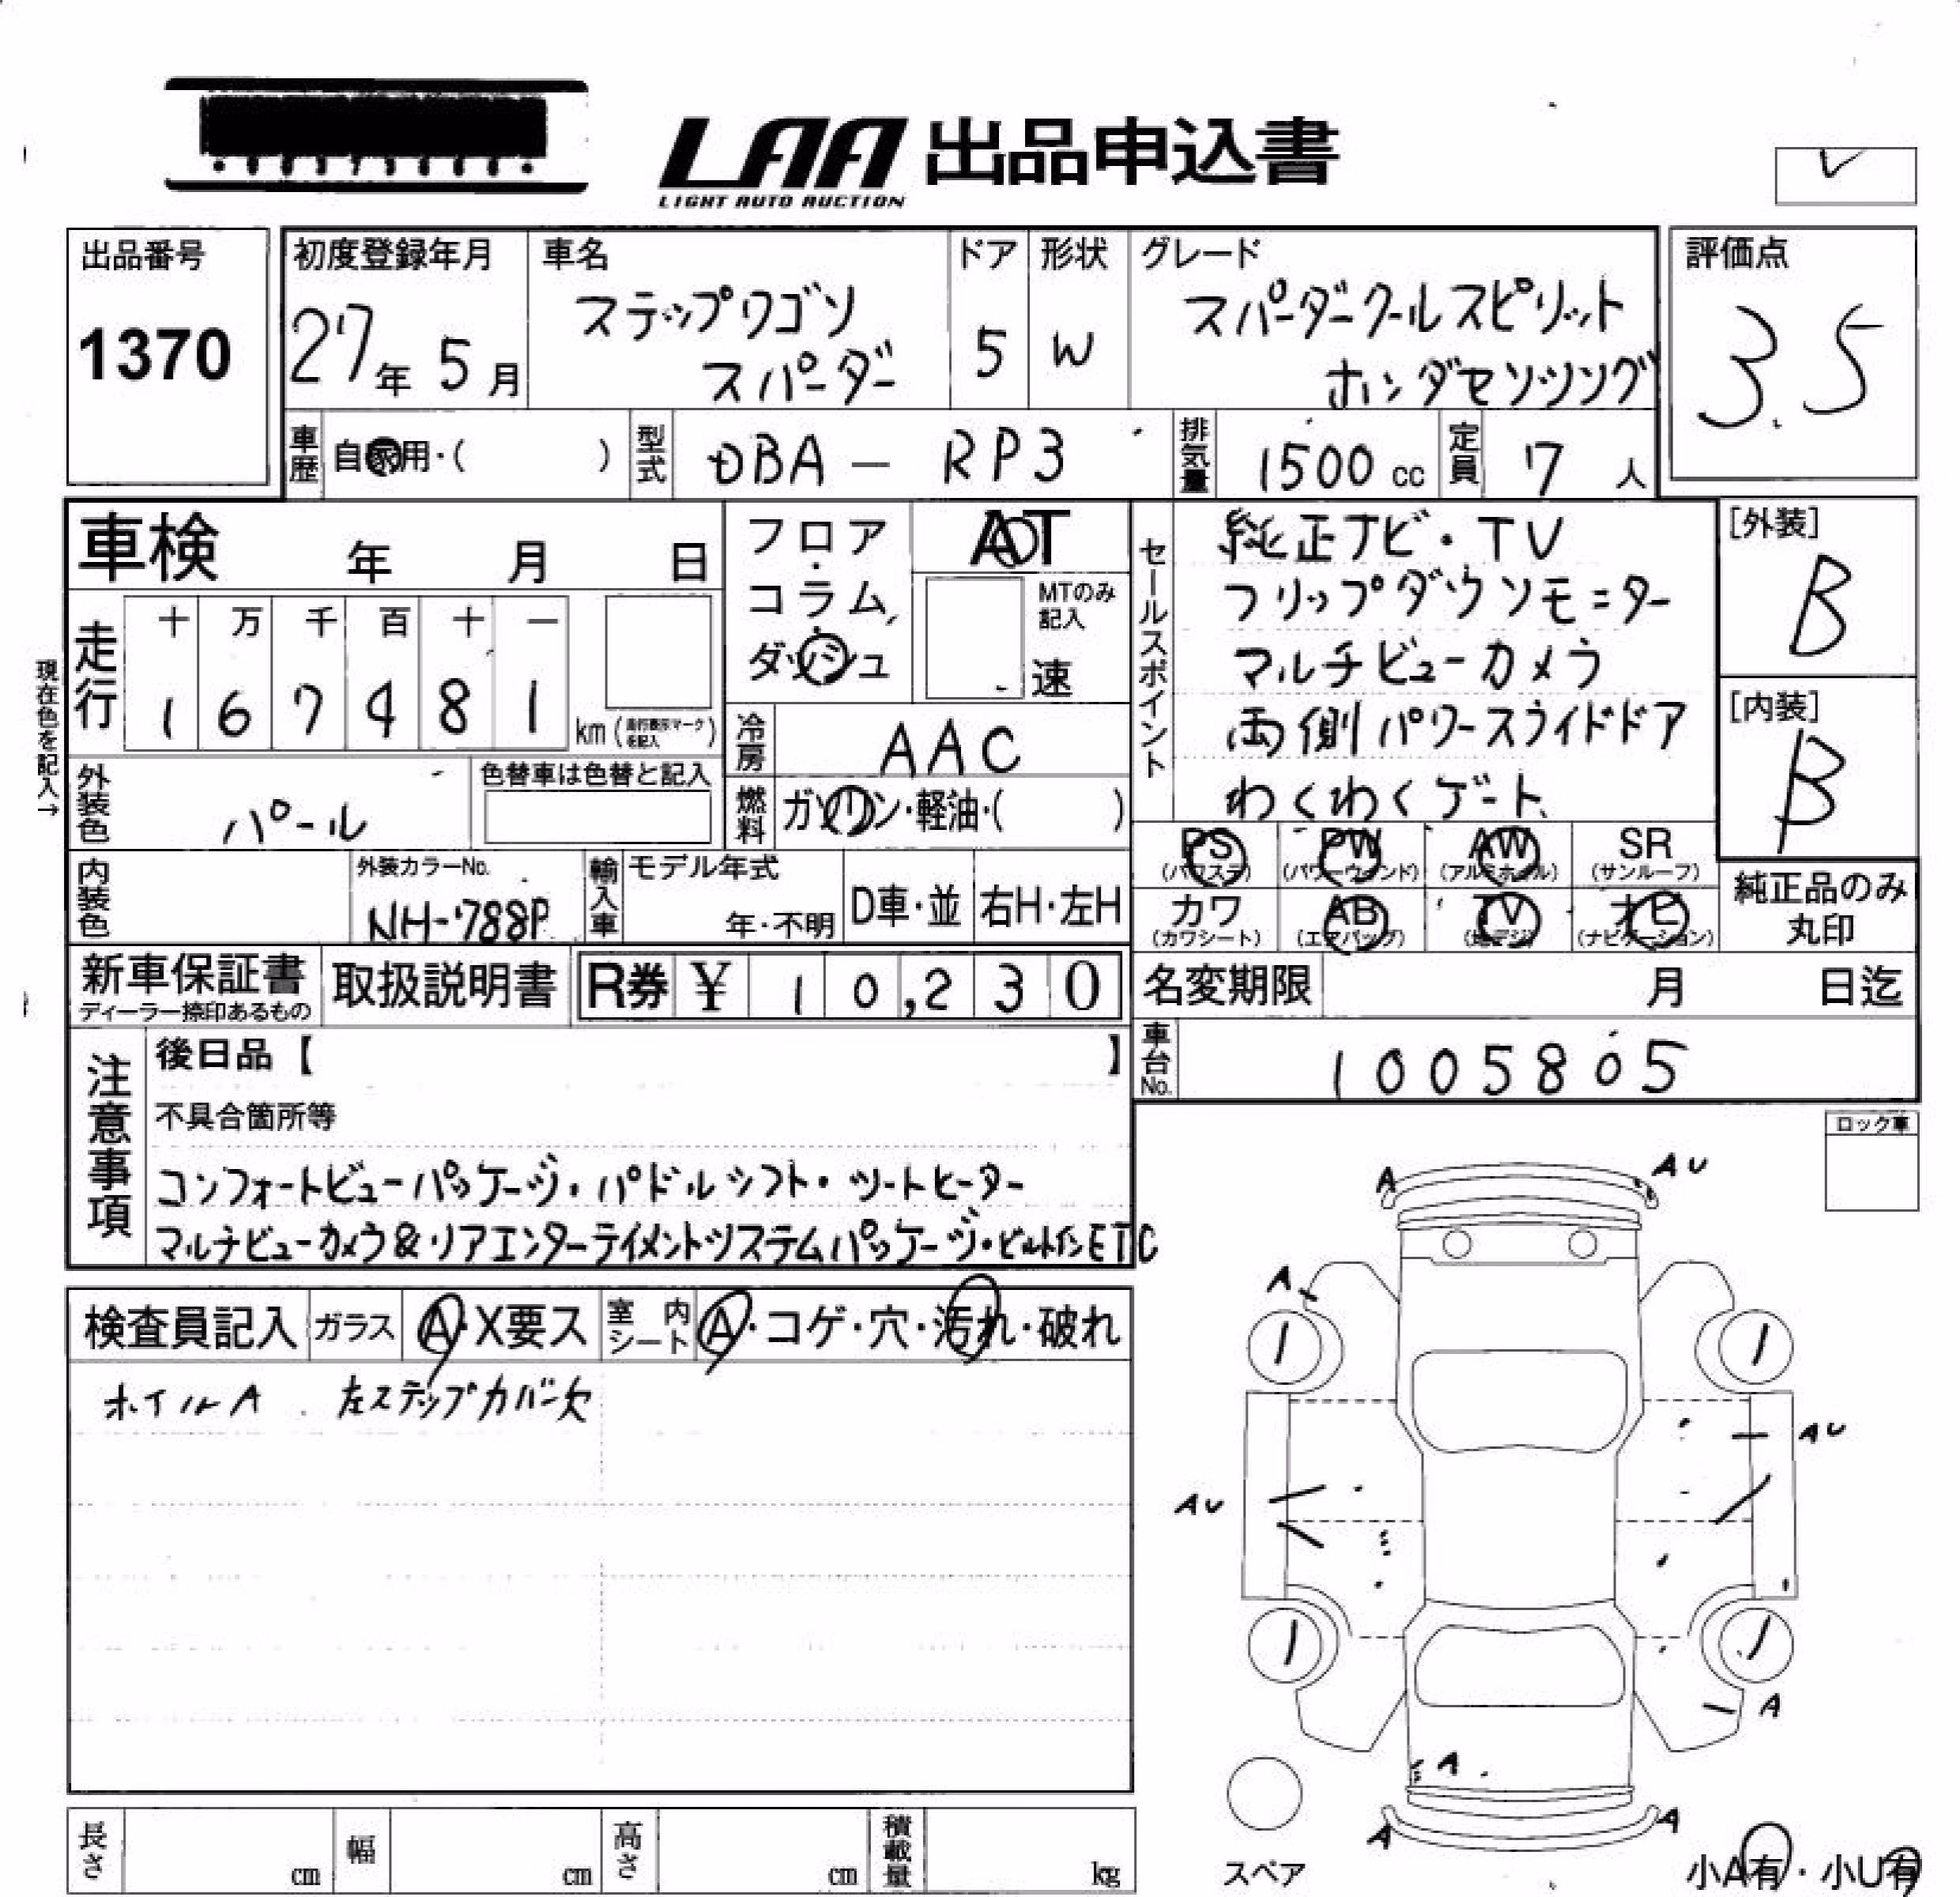 LAA 出品申込書
LIGHT AUTO AUCTION
出品番号
1370
初度登録年月
27年 5月
車名
ステップワゴン
スパーダ
ドア
5
形状
W
グレード
スパーダクールスピリット
ホンダセンシング
評価点
3.5
車歴 自家用・( )
型式 DBA - RP3
排気量 1500 cc
定員 7 人
車検 年 月 日
フロア・コラム・ダッシュ
AT
MTのみ記入
速
セールスポイント
純正ナビ・TV
フリップダウンモニター
マルチビューカメラ
両側パワースライドドア
わくわくゲート
[外装]
B
[内装]
B
現在色を記入→
走行
十 万 千 百 十 一
1 6 7 4 8 1 km (走行表示マークを記入)
冷房 AAC
外装色 パール
色替車は色替と記入
燃料 ガソリン・軽油・( )
PS (パワステ)
PW (パワーウインド)
AW (アルミホイル)
SR (サンルーフ)
内装色
外装カラーNo.
NH-788P
輸入車
モデル年式
年・不明
D車・並
右H・左H
カワ (カワシート)
AB (エアバッグ)
TV (地デジ)
ナビ (ナビゲーション)
純正品のみ
丸印
新車保証書
ディーラー捺印あるもの
取扱説明書
R券 ¥ 10,230
名変期限 月 日迄
車台No. 1005805
注意事項
後日品【 】
不具合箇所等
コンフォートビューパッケージ・パドルシフト・シートヒーター
マルチビューカメラ&リアエンターテイメントシステムパッケージ・ビルトインETC
ロック車
検査員記入
ガラス A・X要ス
室内シート A・コゲ・穴・汚れ・破れ
ホイルA 左ステップカバー欠
A
AU
A
AU
AU
A
A
A
A
スペア
小A有・小U有
長さ cm
幅 cm
高さ cm
積載量 kg